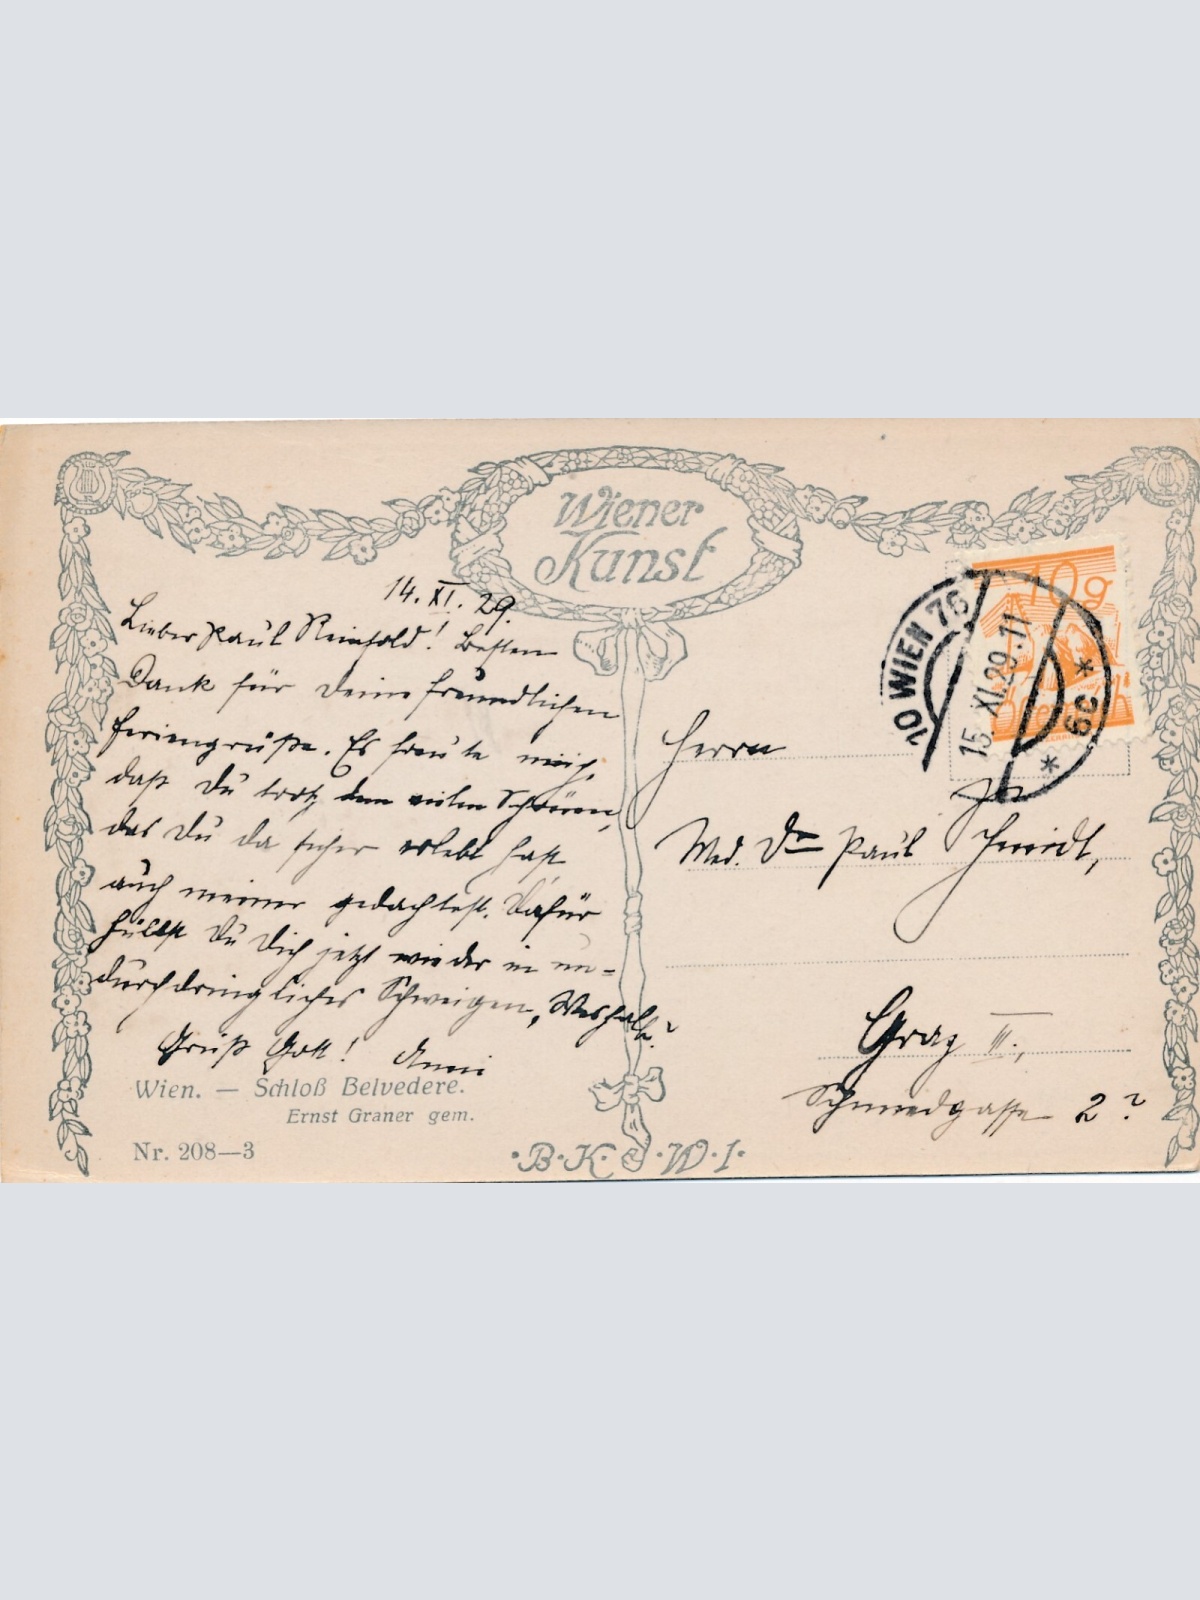 Wiener
Kunst
14. XI. 29.
Lieber Paul Reinhold! Besten
Dank für Deine freundlichen
Feriengrüße. Es freute mich,
daß Du trotz dem vielen Schönen,
das Du da sicher erlebt hast,
auch meiner gedachtest. Dafür
hüllst Du Dich jetzt wieder in un-
durchdringliches Schweigen, Weshalb?
Grüß Gott! Anni
Wien. — Schloß Belvedere.
Ernst Graner gem.
Nr. 208—3
·B·K·W·I·
10 WIEN 76
15. XI. 29. 11
* 6c *
10g
Herrn
Med. Dr Paul
Graz III.,
Schmiedgasse 2?